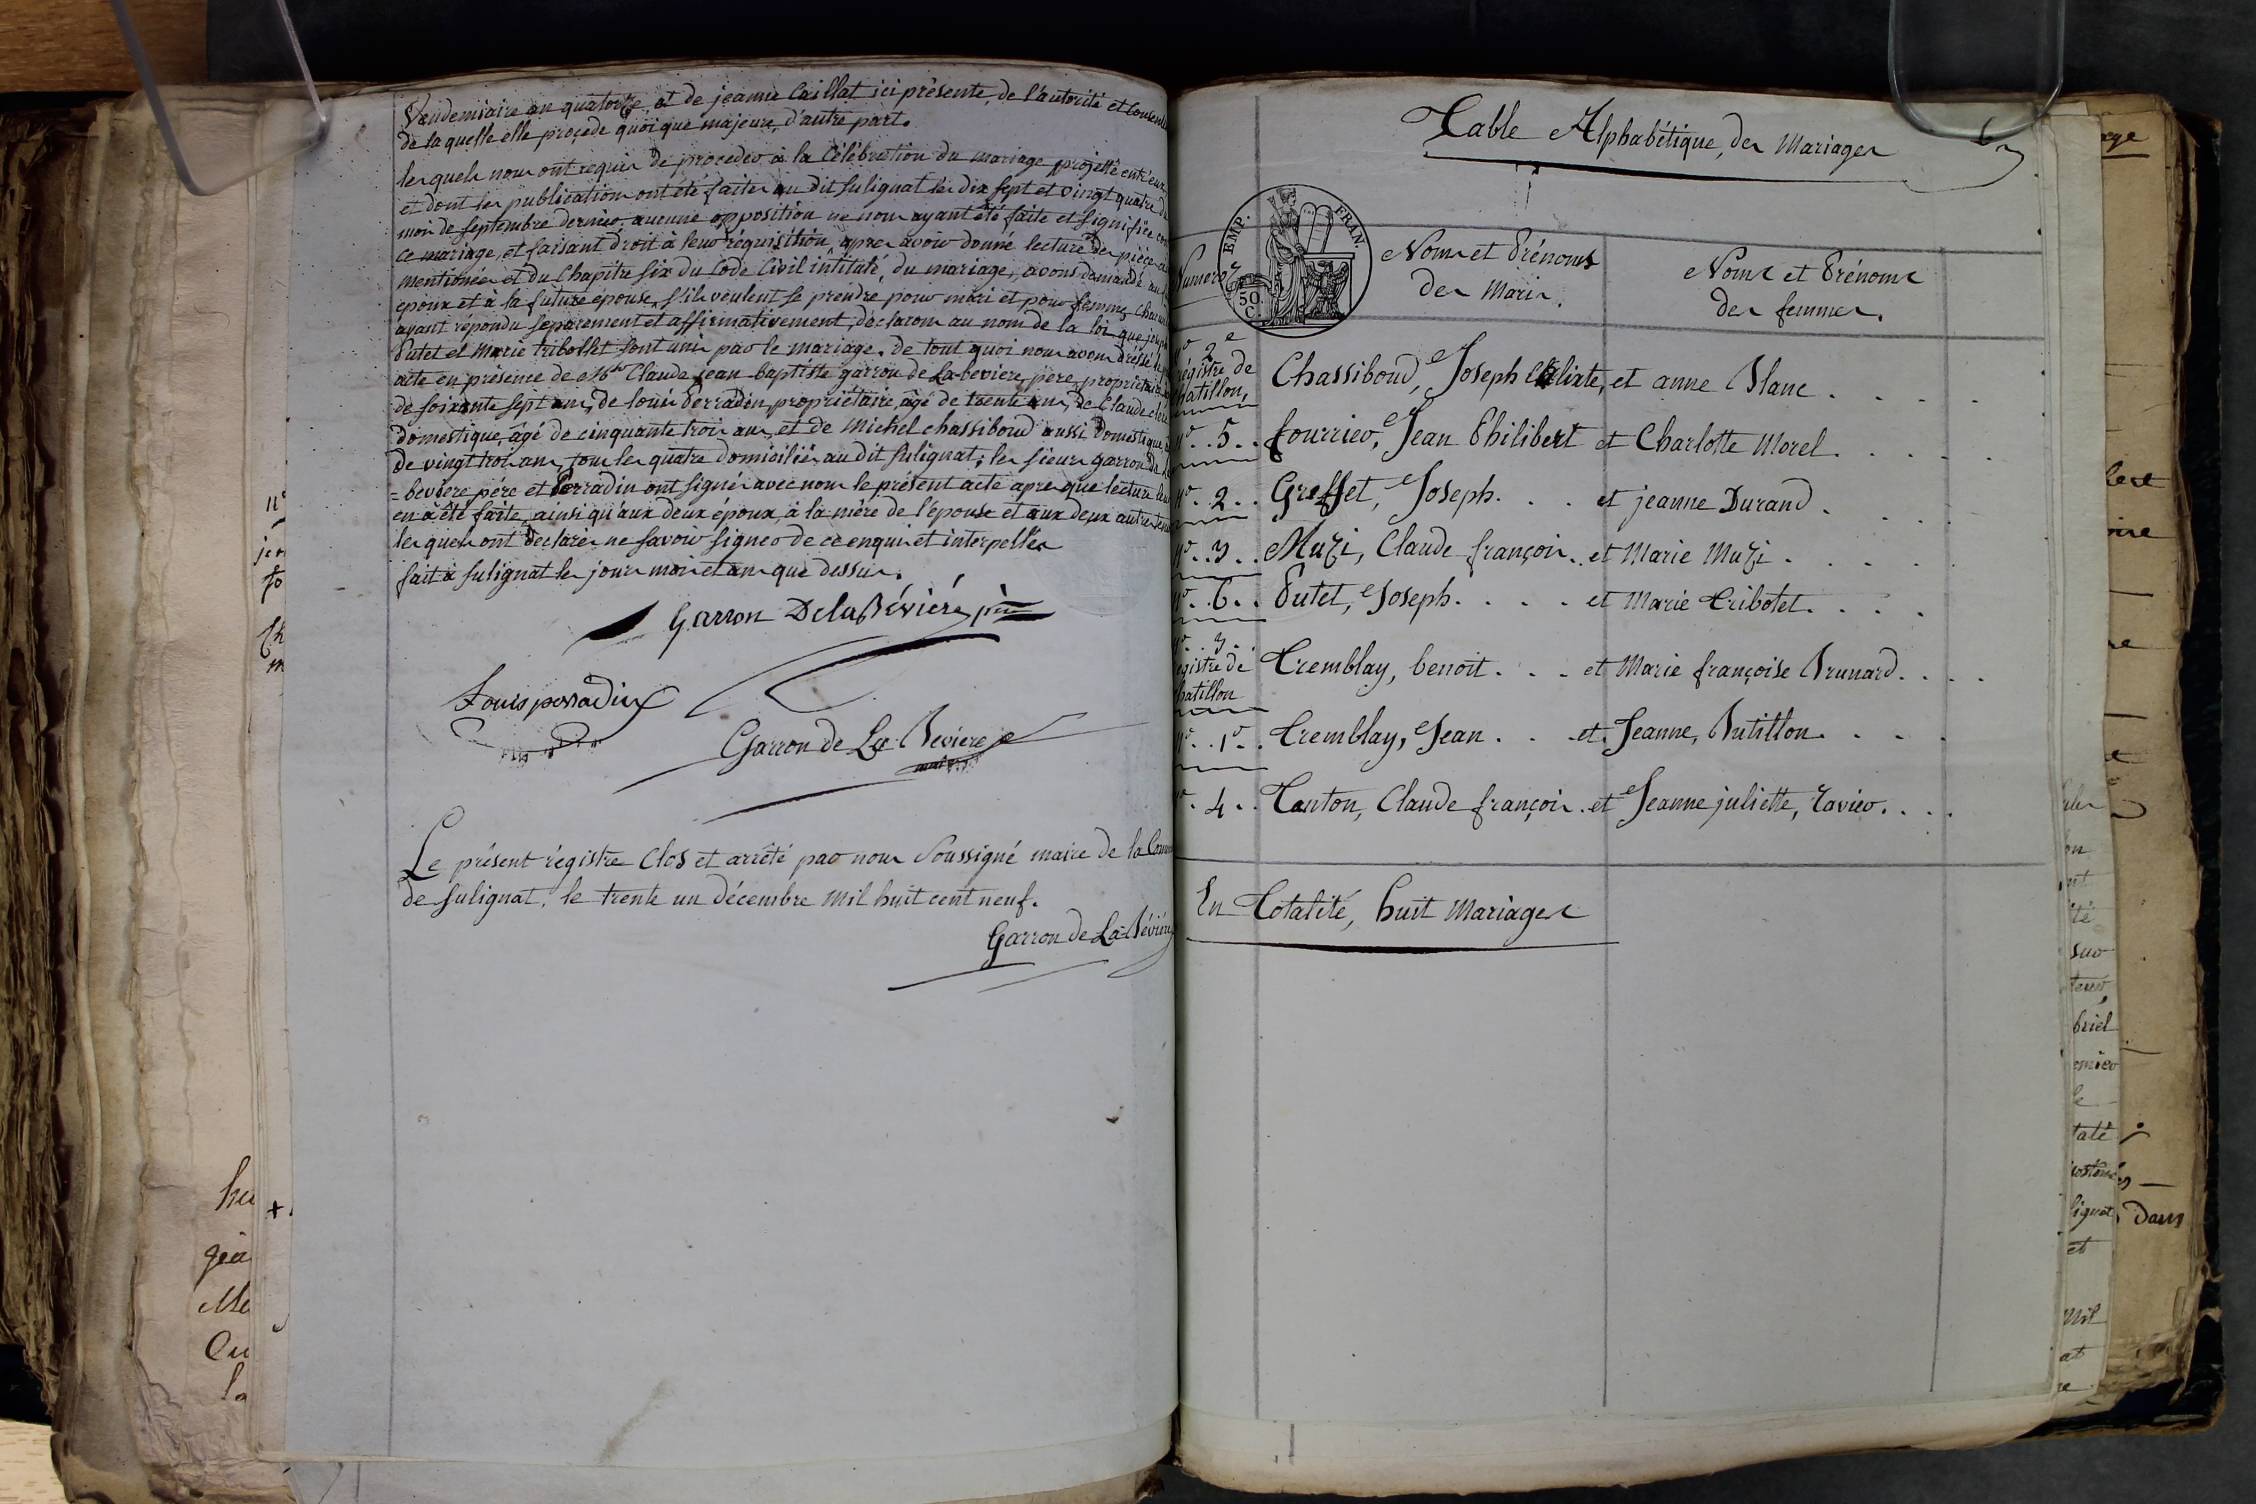 Vendemiaire an quatorze, et de jeanne Caillat ici présente, de l'autorité et
de laquelle elle proçede quoique majeure, d'autre part.
lesquels nous ont requis de proceder à la Célébration du mariage projetté entr'eux,
et dont les publications ont été faites au dit Sulignat les dix sept et vingt quatre du
mois de septembre dernier, aucune opposition ne nous ayant été faite et signifiée
ce mariage, et faisant droit à leur réquisition, apres avoir donné lecture des pièces
mentionées et du Chapitre six du Code Civil intitulé, du mariage, avons demandé au
epoux et à la future épouse, s'ils veulent se prendre pour mari et pour femme,
ayant répondu separement et affirmativement, déclarons au nom de la loi que joseph
Putet et Marie tribollet sont unis par le mariage. de tout quoi nous avons dressé
acte en présence de Claude jean baptiste garron de La-beviere, père, propriétaire
de soixante sept ans, de louis Perradin, propriétaire, âgé de trente ans, de Claude
domestique, âgé de cinquante trois ans, et de Michel chassiboud aussi Domestique,
de vingt trois ans, tous les quatre domiciliés au dit Sulignat; les sieurs garron de La
=beviere père et Perradin ont signés avec nous le présent acte apres que lecture leur
en à été faite, ainsi qu'aux deux époux, à la mère de l'épouse et aux deux autres
lesquels ont déclarés ne savoir signer de ce enquis et interpellés
fait à Sulignat les jour mois et an que dessus.
Garron DelaBévière père
Louis perradin
Garron de La Beviere
Le présent régistre Clos et arrêté par nous Soussigné maire de la
de Sulignat, le trente un décembre Mil huit cent neuf.
Garron de La-Béviére
Table Alphabétique, des Mariages
6
EMP. FRAN.
50 C.
Numeros
Noms et Prénoms
des Maris.
Noms et Prénoms
des femmes.
2e
régistre de
hatillon,
Chassiboud, Joseph Calixte, et anne Blanc
5. fourrier, Jean Philibert et Charlotte Morel
2. Greffet, Joseph. et jeanne Durand.
3. Muzi, Claude françois. et Marie Muzi.
6. Putet, Joseph. et Marie Tribolet.
3.
egistre de
hatillon
Tremblay, benoit. et Marie françoise Brunard.
1. Tremblay, Jean. et Jeanne, Butillon.
4. Tanton, Claude françois. et Jeanne juliette, Ravier.
En Totalité, huit Mariages